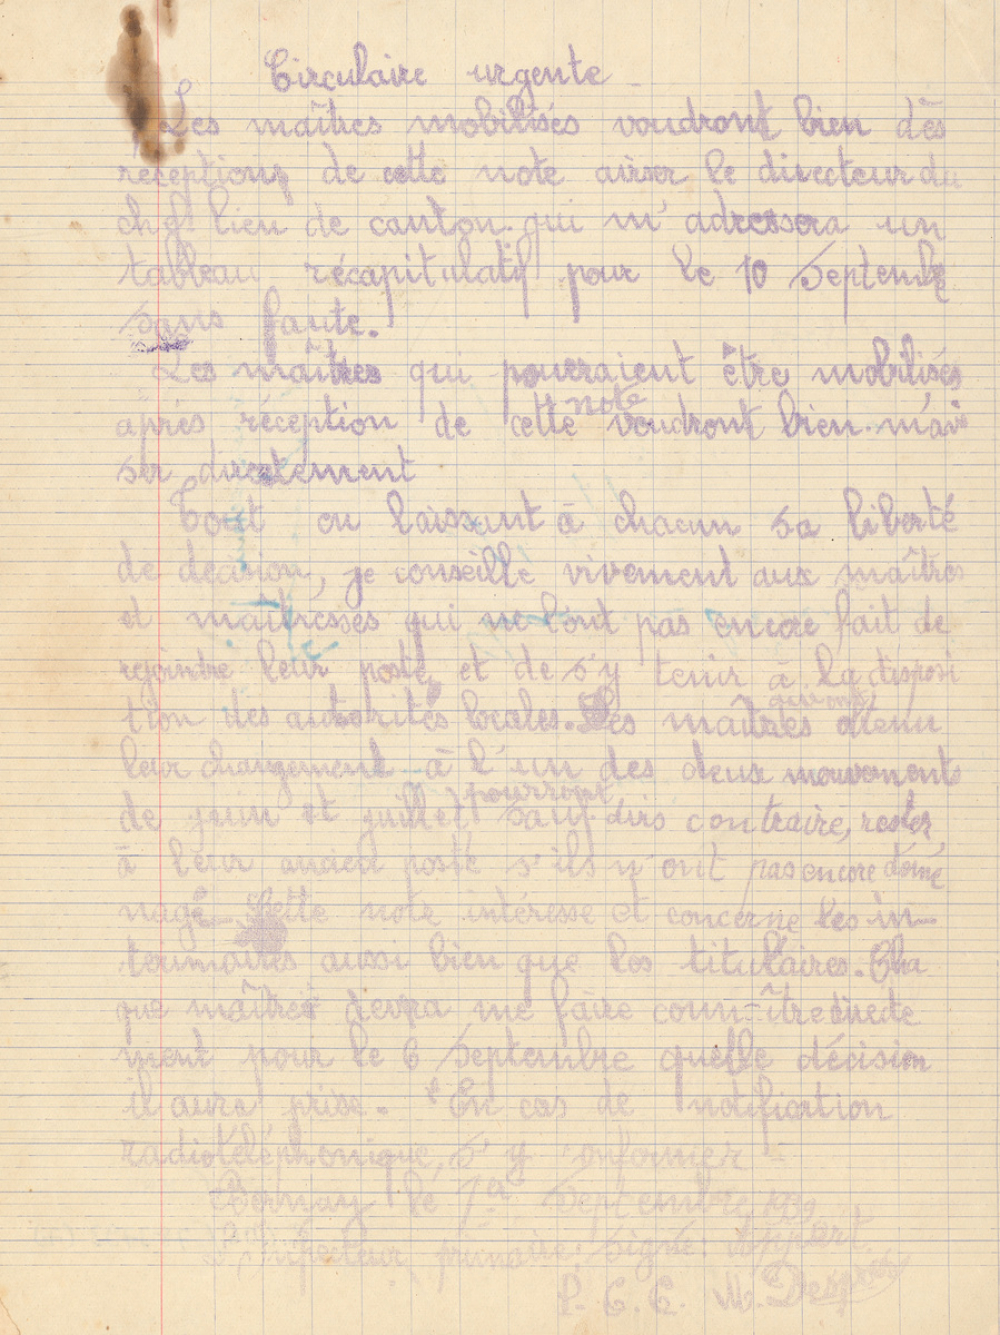 Circulaire urgente -
Les maîtres mobilisés voudront bien dès
réception de cette note aviser le directeur du
chef lieu de canton qui m'adressera un
tableau récapitulatif pour le 10 Septembre
sans faute.
Les maîtres qui pourraient être mobilisés
après réception de cette note voudront bien m'avi
ser directement
Tout en laissant à chacun sa liberté
de décision, je conseille vivement aux maîtres
et maîtresses qui ne l'ont pas encore fait de
rejoindre leur poste et de s'y tenir à la disposi
tion des autorités locales. Les maîtres ayant obtenu
leur changement à l'un des deux mouvements
de juin et juillet pourront, sauf avis contraire, rester
à leur ancien poste s'ils n'ont pas encore démé
nagé. Cette note intéresse et concerne les in-
terimaires aussi bien que les titulaires. Cha
que maître devra me faire connaître directe
ment pour le 6 Septembre quelle décision
il aura prise. En cas de notification
radiotéléphonique, s'y conformer -
Bernay le 1er Septembre 1939
L'Inspecteur primaire: signé: Appert
P. C. C. M.